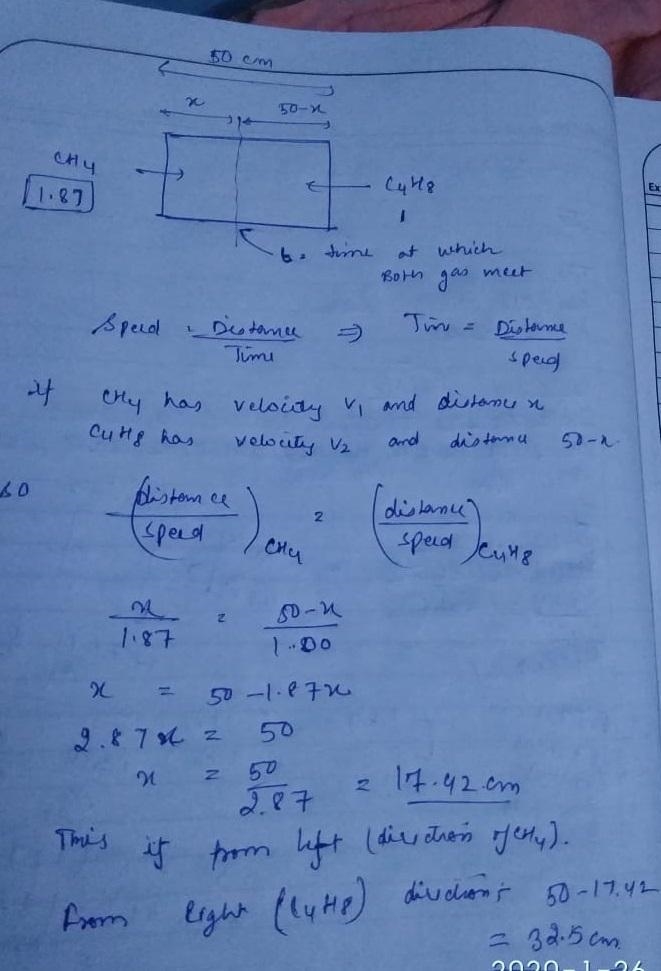 50 cm
x 50-x
CH4 C4H8
1.87 1
t = time at which
Both gas meet
Speed = Distance / Time ⇒ Tim = Distance / speed
If CH4 has velocity V1 and distance x
C4H8 has velocity V2 and distance 50-x
so (distance / speed)CH4 = (distance / speed)C4H8
x / 1.87 = 50-x / 1.00
x = 50 - 1.87x
2.87x = 50
x = 50 / 2.87 = 17.42 cm
This if from left (direction of CH4).
From right (C4H8) direction: 50-17.42
= 32.5 cm
Ex